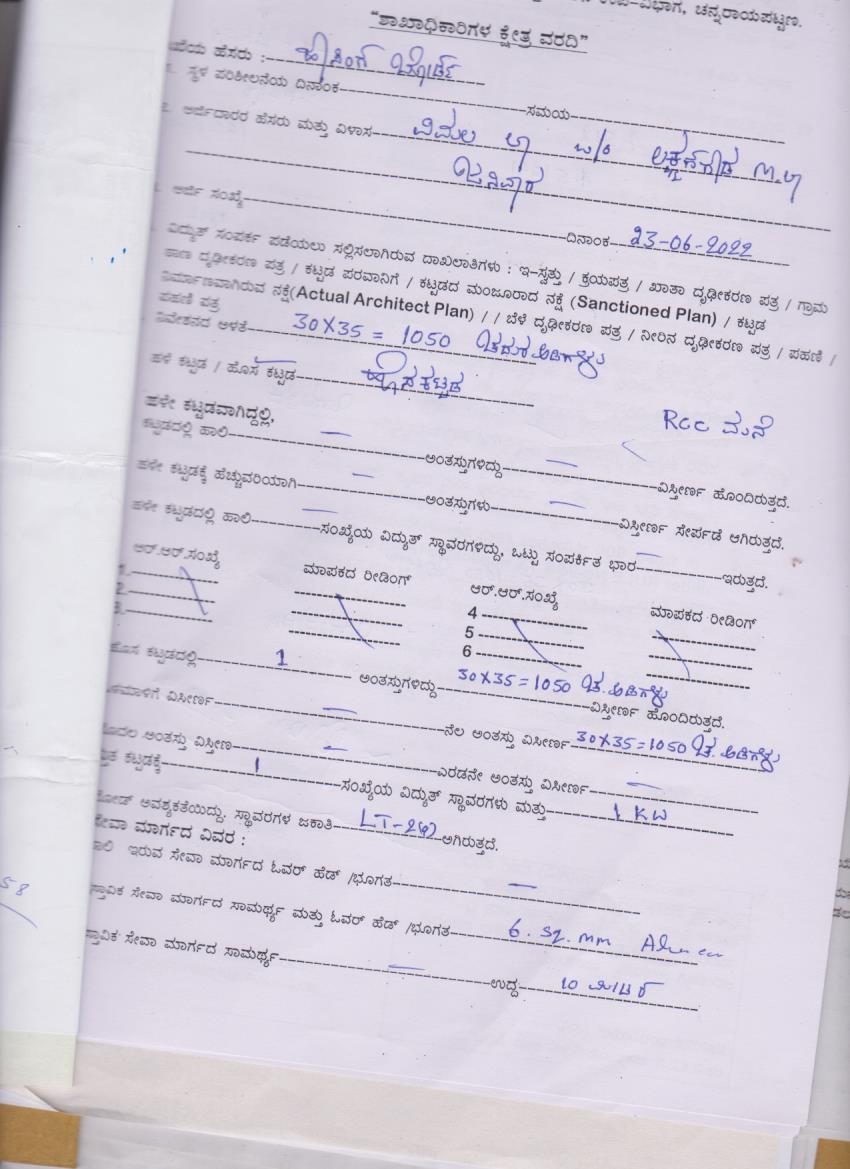 ಉಪ-ವಿಭಾಗ, ಚನ್ನರಾಯಪಟ್ಟಣ.
"ಶಾಖಾಧಿಕಾರಿಗಳ ಕ್ಷೇತ್ರ ವರದಿ"
ಹೆಸರು :- ಹೌಸಿಂಗ್ ಬೋರ್ಡ್
ಸ್ಥಳ ಪರಿಶೀಲನೆಯ ದಿನಾಂಕ ಸಮಯ
ಅರ್ಜಿದಾರರ ಹೆಸರು ಮತ್ತು ವಿಳಾಸ ವಿಮಲ
ಅರ್ಜಿ ಸಂಖ್ಯೆ ದಿನಾಂಕ 23-06-2022
ವಿದ್ಯುತ್ ಸಂಪರ್ಕ ಪಡೆಯಲು ಸಲ್ಲಿಸಲಾಗಿರುವ ದಾಖಲಾತಿಗಳು : ಇ-ಸ್ವತ್ತು / ಕ್ರಯಪತ್ರ / ಖಾತಾ ದೃಢೀಕರಣ ಪತ್ರ / ಗ್ರಾಮ
ಠಾಣ ದೃಢೀಕರಣ ಪತ್ರ / ಕಟ್ಟಡ ಪರವಾನಿಗೆ / ಕಟ್ಟಡದ ಮಂಜೂರಾದ ನಕ್ಷೆ (Sanctioned Plan) / ಕಟ್ಟಡ
ನಿರ್ಮಾಣವಾಗಿರುವ ನಕ್ಷೆ(Actual Architect Plan) / / ಬೆಳೆ ದೃಢೀಕರಣ ಪತ್ರ / ನೀರಿನ ದೃಢೀಕರಣ ಪತ್ರ / ಪಹಣಿ /
ಪಹಣಿ ಪತ್ರ
ನಿವೇಶನದ ಅಳತೆ 30X35 = 1050 ಚದುರ ಅಡಿಗಳು
ಹಳೆ ಕಟ್ಟಡ / ಹೊಸ ಕಟ್ಟಡ ಹೊಸಕಟ್ಟಡ
RCC ಮನೆ
ಹಳೇ ಕಟ್ಟಡವಾಗಿದ್ದಲ್ಲಿ,
ಕಟ್ಟಡದಲ್ಲಿ ಹಾಲಿ — ಅಂತಸ್ತುಗಳಿದ್ದು — ವಿಸ್ತೀರ್ಣ ಹೊಂದಿರುತ್ತದೆ.
ಹಳೇ ಕಟ್ಟಡಕ್ಕೆ ಹೆಚ್ಚುವರಿಯಾಗಿ — ಅಂತಸ್ತುಗಳು — ವಿಸ್ತೀರ್ಣ ಸೇರ್ಪಡೆ ಆಗಿರುತ್ತದೆ.
ಹಳೇ ಕಟ್ಟಡದಲ್ಲಿ ಹಾಲಿ — ಸಂಖ್ಯೆಯ ವಿದ್ಯುತ್ ಸ್ಥಾವರಗಳಿದ್ದು, ಒಟ್ಟು ಸಂಪರ್ಕಿತ ಭಾರ — ಇರುತ್ತದೆ.
ಆರ್.ಆರ್.ಸಂಖ್ಯೆ ಮಾಪಕದ ರೀಡಿಂಗ್ ಆರ್.ಆರ್.ಸಂಖ್ಯೆ ಮಾಪಕದ ರೀಡಿಂಗ್
1. 4
2. 5
3. 6
ಹೊಸ ಕಟ್ಟಡದಲ್ಲಿ 1 ಅಂತಸ್ತುಗಳಿದ್ದು 30X35=1050 ಚ. ಅಡಿಗಳು ವಿಸ್ತೀರ್ಣ ಹೊಂದಿರುತ್ತದೆ.
ನೆಲಮಾಳಿಗೆ ವಿಸೀರ್ಣ — ನೆಲ ಅಂತಸ್ತು ವಿಸೀರ್ಣ 30X35=1050 ಚ. ಅಡಿಗಳು
ಮೊದಲ ಅಂತಸ್ತು ವಿಸ್ತೀಣ — ಎರಡನೇ ಅಂತಸ್ತು ವಿಸೀರ್ಣ —
ಕಟ್ಟಡಕ್ಕೆ 1 ಸಂಖ್ಯೆಯ ವಿದ್ಯುತ್ ಸ್ಥಾವರಗಳು ಮತ್ತು 1 KW
ಲೋಡ್ ಅವಶ್ಯಕತೆಯಿದ್ದು, ಸ್ಥಾವರಗಳ ಜಕಾತಿ LT-2 ಆಗಿರುತ್ತದೆ.
ಸೇವಾ ಮಾರ್ಗದ ವಿವರ :
ಹಾಲಿ ಇರುವ ಸೇವಾ ಮಾರ್ಗದ ಓವರ್ ಹೆಡ್ /ಭೂಗತ —
ಸ್ತಾವಿಕ ಸೇವಾ ಮಾರ್ಗದ ಸಾಮರ್ಥ್ಯ ಮತ್ತು ಓವರ್ ಹೆಡ್ /ಭೂಗತ 6. sq. mm
ಸ್ತಾವಿಕ ಸೇವಾ ಮಾರ್ಗದ ಸಾಮರ್ಥ್ಯ — ಉದ್ದ 10 ಮೀಟರ್
58